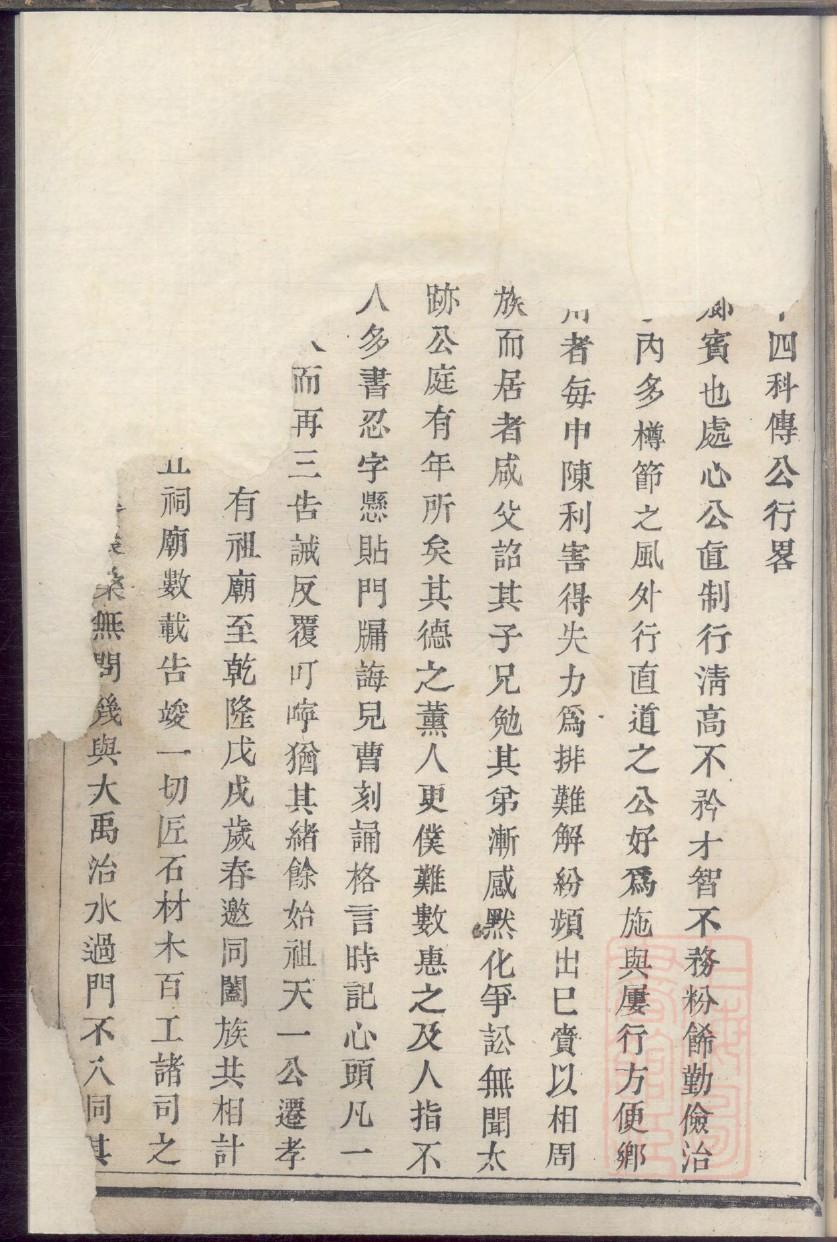 四科傳公行畧
鄉賓也處心公直制行淸高不矜才智不務粉餙勤儉治
內多樽節之風外行直道之公好爲施與屢行方便鄉
用者每申陳利害得失力爲排難解紛頻出巳賫以相周
族而居者咸父詔其子兄勉其弟漸感黙化爭訟無聞太
跡公庭有年所矣其德之薰人更僕難數惠之及人指不
人多書忍字懸貼門牖誨兒曹刻誦格言時記心頭凡一
而再三告誡反覆叮嚀猶其緒餘始祖天一公遷孝
有祖廟至乾隆戊戌歲春邀同闔族共相計
祠廟數載告竣一切匠石材木百工諸司之
無間幾與大禹治水過門不入同其